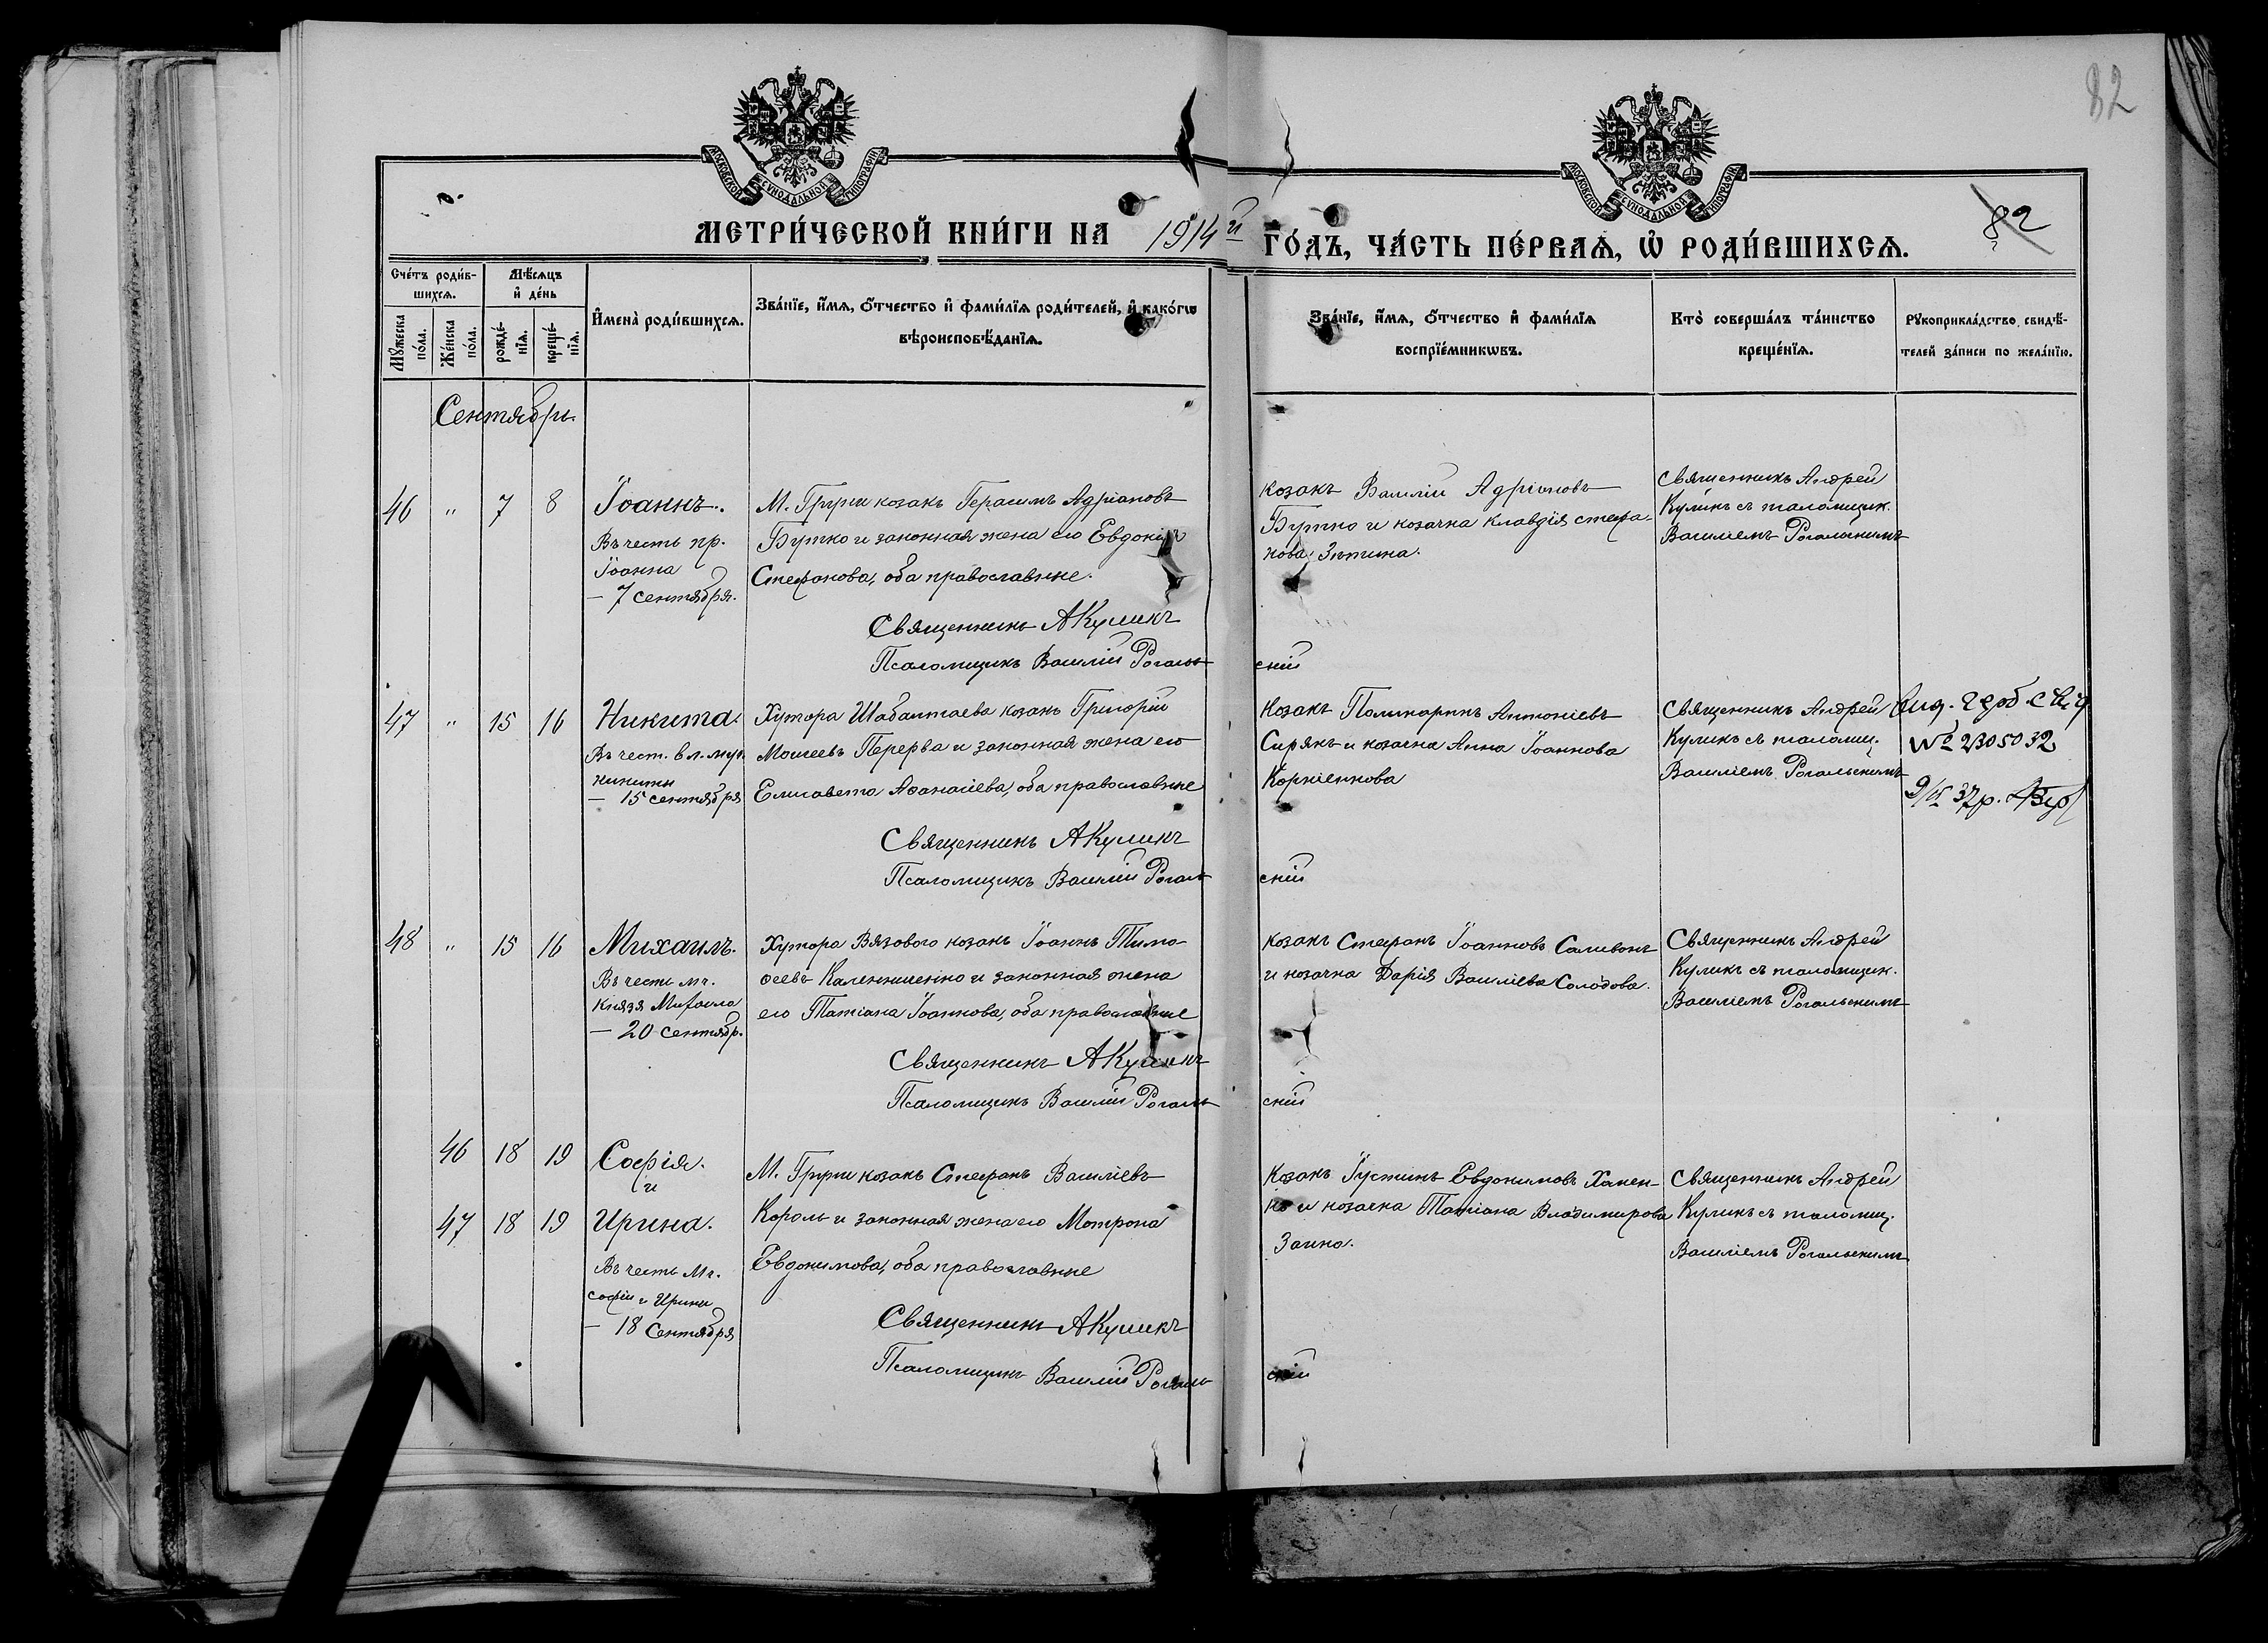 82
МОСКОВСКОЙ СѴНОДАЛЬНОЙ ТИПОГРАФІИ
МОСКОВСКОЙ СѴНОДАЛЬНОЙ ТИПОГРАФІИ
МЕТРИ́ЧЕСКОЙ КНИ́ГИ НА 1914 й ГО́ДЪ, ЧА́СТЬ ПЕ́РВАѦ, Ѡ҆ РОДИ́ВШИХСѦ.
82
Сче́тъ роди́в-
шихсѧ.
Мѣ́сѧцъ
и҆ де́нь
Мꙋ́жеска
по́ла.
Же́нска
по́ла.
рожде́-
нїѧ.
креще́-
нїѧ.
И҆мена̀ роди́вшихсѧ.
Зва́нїе, и҆́мѧ, ѻ҆́тчество и҆ фами́лїѧ роди́телей, и҆ како́гѡ
вѣроисповѣ́данїѧ.
Зва́нїе, и҆́мѧ, ѻ҆́тчество и҆ фами́лїѧ
воспрїе́мникѡвъ.
Кто̀ соверша́лъ та́инство
креще́нїѧ.
Рꙋкоприкла́дство свидѣ́-
телей за́писи по жела́нїю.
Сентябрь.
46 " 7 8
Іоаннъ.
Въ честь пр.
Іоанна
– 7 сентября.
М. Груни козакъ Герасимъ Адріановъ
Бутко и законная жена его Евдокія
Стефанова, оба православные.
Священникъ АКуликъ
Псаломщикъ Василій Рогаль-
скій
козакъ Василій Адріановъ
Бутко и козачка Клавдія Стефа-
нова
Священникъ Андрей
Куликъ съ псаломщик.
Василіемъ Рогальскимъ
47 " 15 16
Никита.
Въ чест. вл. муч.
Никиты
– 15 сентября
Хутора Шабалтаева козакъ Григорій
Моисеевъ Перерва и законная жена его
Елисавета Аѳанасіева, оба православные
Священникъ АКуликъ
Псаломщикъ Василій Рогаль-
скій
Козакъ Поликарпъ Антоніевъ
Сирякъ и козачка Анна Іоаннова
Корніенкова
Священникъ Андрей
Куликъ съ псаломщ.
Василіемъ Рогальскимъ
№ 2305032
37 р.
48 " 15 16
Михаилъ.
Въ честь мч.
Князя Михаила
– 20 сентябр.
Хутора Вязового козакъ Іоаннъ Тимо-
ѳеевъ Калениченко и законная жена
его Татіана Іоаннова, оба православные
Священникъ АКуликъ
Псаломщикъ Василій Рогаль-
скій
козакъ Стефанъ Іоанновъ Саливонъ
и козачка Дарія Василіева Солодова.
Священникъ Андрей
Куликъ съ псаломщик.
Василіемъ Рогальскимъ
46 18 19
Софія.
и
47 18 19
Ирина.
Въ честь Мч.
Софіи и Ирины
– 18 Сентября
М. Груни козакъ Стефанъ Василіевъ
Король и законная жена его Мотрона
Евдокимова, оба православные
Священникъ АКуликъ
Псаломщикъ Василій Рогаль-
скій
Козакъ Іустинъ Евдокимовъ Хомен-
ко и козачка Татіана Владимирова
Заика.
Священникъ Андрей
Куликъ съ псаломщ.
Василіемъ Рогальскимъ